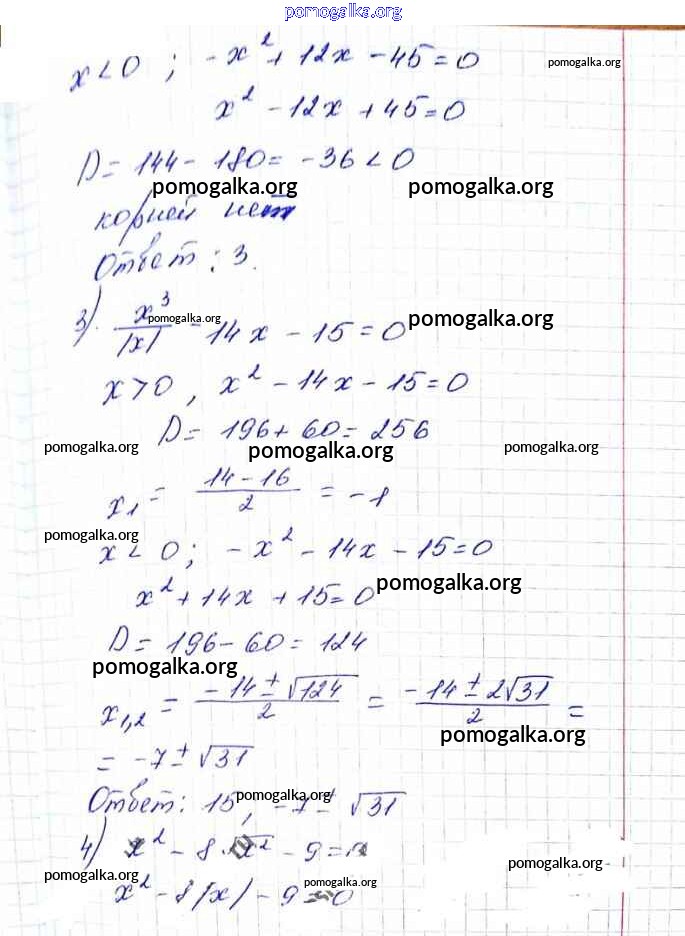 pomogalka.org
x < 0 ; -x² + 12x - 45 = 0
pomogalka.org
x² - 12x + 45 = 0
D = 144 - 180 = -36 < 0
pomogalka.org pomogalka.org
корней нет
Ответ : 3.
3) x³/|x| - 14x - 15 = 0
pomogalka.org pomogalka.org
x > 0 , x² - 14x - 15 = 0
D = 196 + 60 = 256
pomogalka.org pomogalka.org pomogalka.org
x₁ = (14 - 16)/2 = -1
pomogalka.org
x < 0 ; -x² - 14x - 15 = 0
pomogalka.org
x² + 14x + 15 = 0
D = 196 - 60 = 124
pomogalka.org
x₁,₂ = (-14 ± √124)/2 = (-14 ± 2√31)/2 =
pomogalka.org
= -7 ± √31
Ответ: 15, -7 ± √31
pomogalka.org
4) x² - 8√x² - 9 =
pomogalka.org
x² - 8|x| - 9 = 0
pomogalka.org pomogalka.org